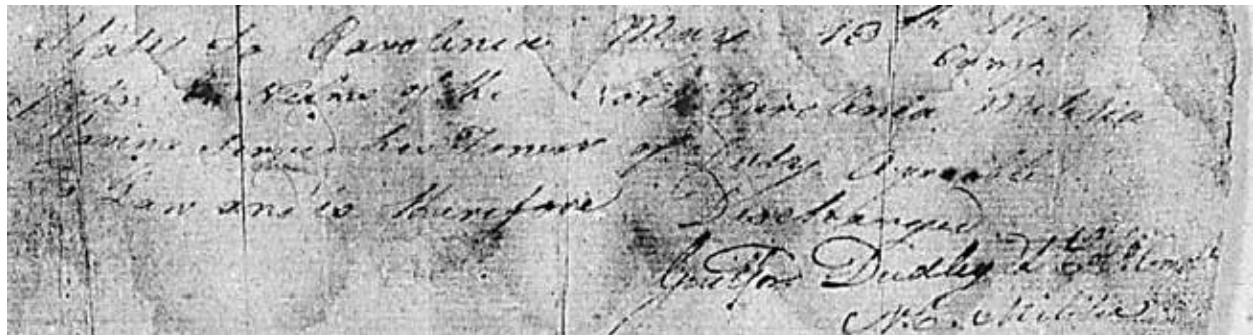 State So Carolinia May 10th
Camp
John of the North Carolinia Militia
Having Served his Tower of Duty Agreeable
Law and is therefore Discharged
Guilford Dudley
N.C. Militia